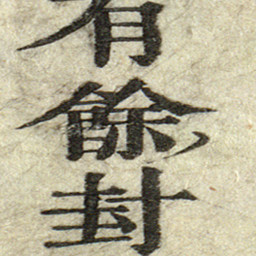 有餘封